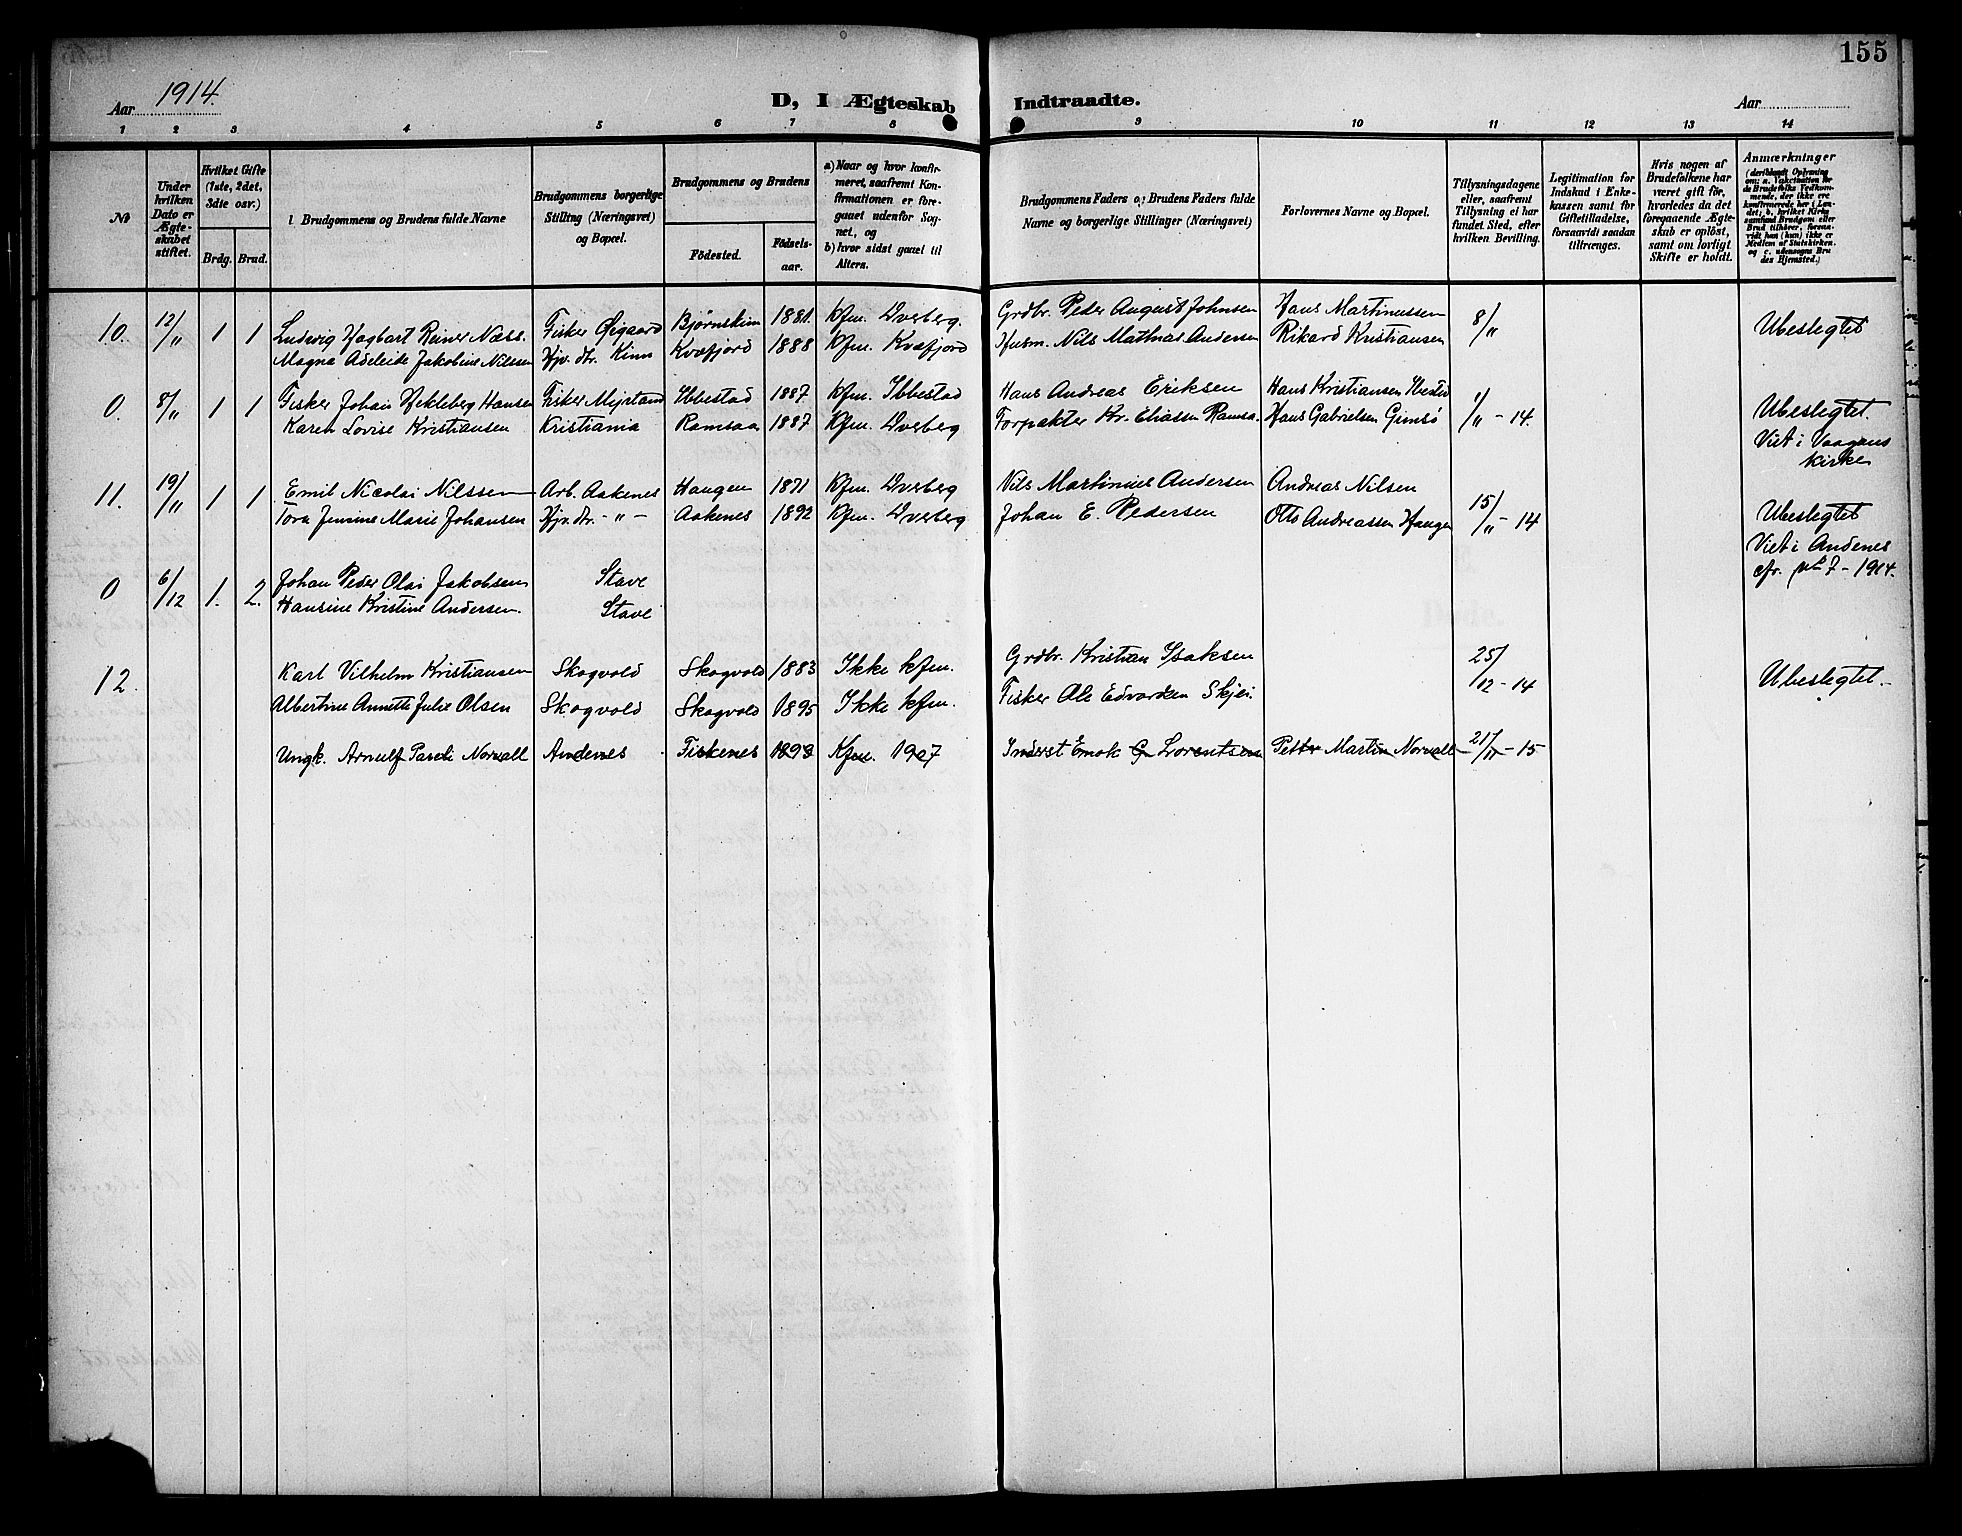 155
Aar 1914.
D, I Ægteskab Indtraadte.
Aar
1 2 3 4 5 6 7 8 9 10 11 12 13 14
No
Under hvilken Dato er Ægteskabet stiftet.
Hvilket Gifte (1ste, 2det, 3die osv.)
Brdg. Brud.
Brudgommens og Brudens fulde Navne
Brudgommens borgerlige Stilling (Næringsvei) og Bopæl.
Brudgommens og Brudens
Födested. Födsels-aar.
a) Naar og hvor konfirmeret, saafremt Konfirmationen er foregaaet udenfor Sognet, og
b) hvor sidst gaaet til Alters.
Brudgommens Faders og Brudens Faders fulde Navne og borgerlige Stillinger (Næringsvei)
Forlovernes Navne og Bopæl.
Tillysningsdagene eller, saafremt Tillysning ei har fundet Sted, efter hvilken Bevilling.
Legitimation for Indskud i Enkekassen samt for Giftetilladelse, forsaavidt saadan tiltrænges.
Hvis nogen af Brudefolkene har været gift för, hvorledes da det foregaaende Ægteskab er oplöst, samt om lovligt Skifte er holdt.
Anmærkninger (deriblandt Oplysning om: a. Vaccination for de Brudefolks Vedkommende, der ikke ere konfirmerede her i Landet; b, hvilket Kirkesamfund Brudgom eller Brud tilhörer, forsaavidt han (hun) ikke er Medlem af Statskirken, og c. udensogns Brudes Hjemsted.)
10. 12/" 1 1 Ludwig Hagbart Reiner Næss. Fisker Øigaard Bjørnskin 1881. Kfm. Dverberg. Grdbr. Peder August Johnsen Hans Martinussen 8/" Ubeslegtet
Magna Adeleide Jakobine Nilssen Hjv. dtr. Kinn Kvæfjord 1888 Kfm. Kvæfjord Husm. Nils Mathias Andersen Rikard Kristiansen
0. 8/" 1 1 Fisker Johan Hekleberg Hansen Fisker Myrland Ibbestad 1887 Kfm. Ibbestad Hans Andreas Eriksen Hans Kristiansen Ibestad 1/" - 14. Ubeslegtet.
Karen Lovise Kristiansen Kristiania Ramsaa 1887 Kfm. Dverberg Forpakter Kr. Eliassen Ramsa. Hans Gabrielsen Gimsø
Viet i Vaagans
kirke
11. 19/" 1 1 Emil Nicolai Nilssen Arb. Aakenes Haugen 1871 Kfm. Dverberg Nils Martinius Andersen Andreas Nilsen 15/" - 14 Ubeslegtet
Tora Jensine Marie Johansen Hjv. dtr. - " - Aakenes 1892 Kfm. Dverberg Johan E. Pedersen Otto Andreassen Haugen
Viet i Andenes
cfr. No 7 - 1914.
0 6/12 1. 2. Johan Peder Olai Jakobsen Stave
Hansine Kristine Andersen. Stave
12. Karl Vilhelm Kristiansen Skogvold Skogvold 1883 Ikke kfm. Grdbr. Kristian Isaksen 25/12 - 14 Ubeslegtet.
Albertine Annette Julie Olsen Skogvold Skogvold 1895 Ikke kfm. Fisker Ole Edvardsen Skjei.
Ungk. Arnulf Pareli Norvall Andenes Fiskenes 1893 Kfm. 1907 Inderst Enok Lorentsen Petter Martin Norvall 21/11 - 15